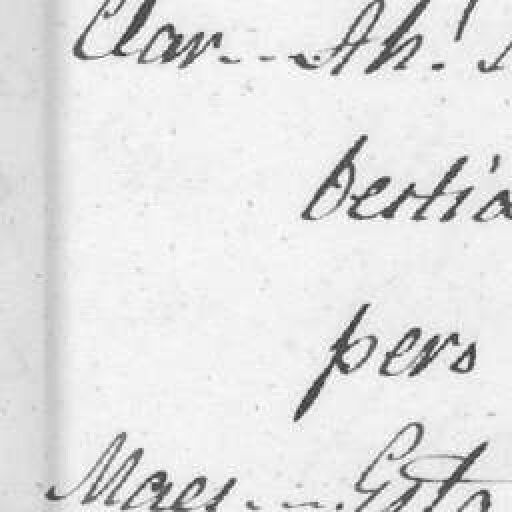 Clar... Ah!
bestia
pero
Maes... Esto